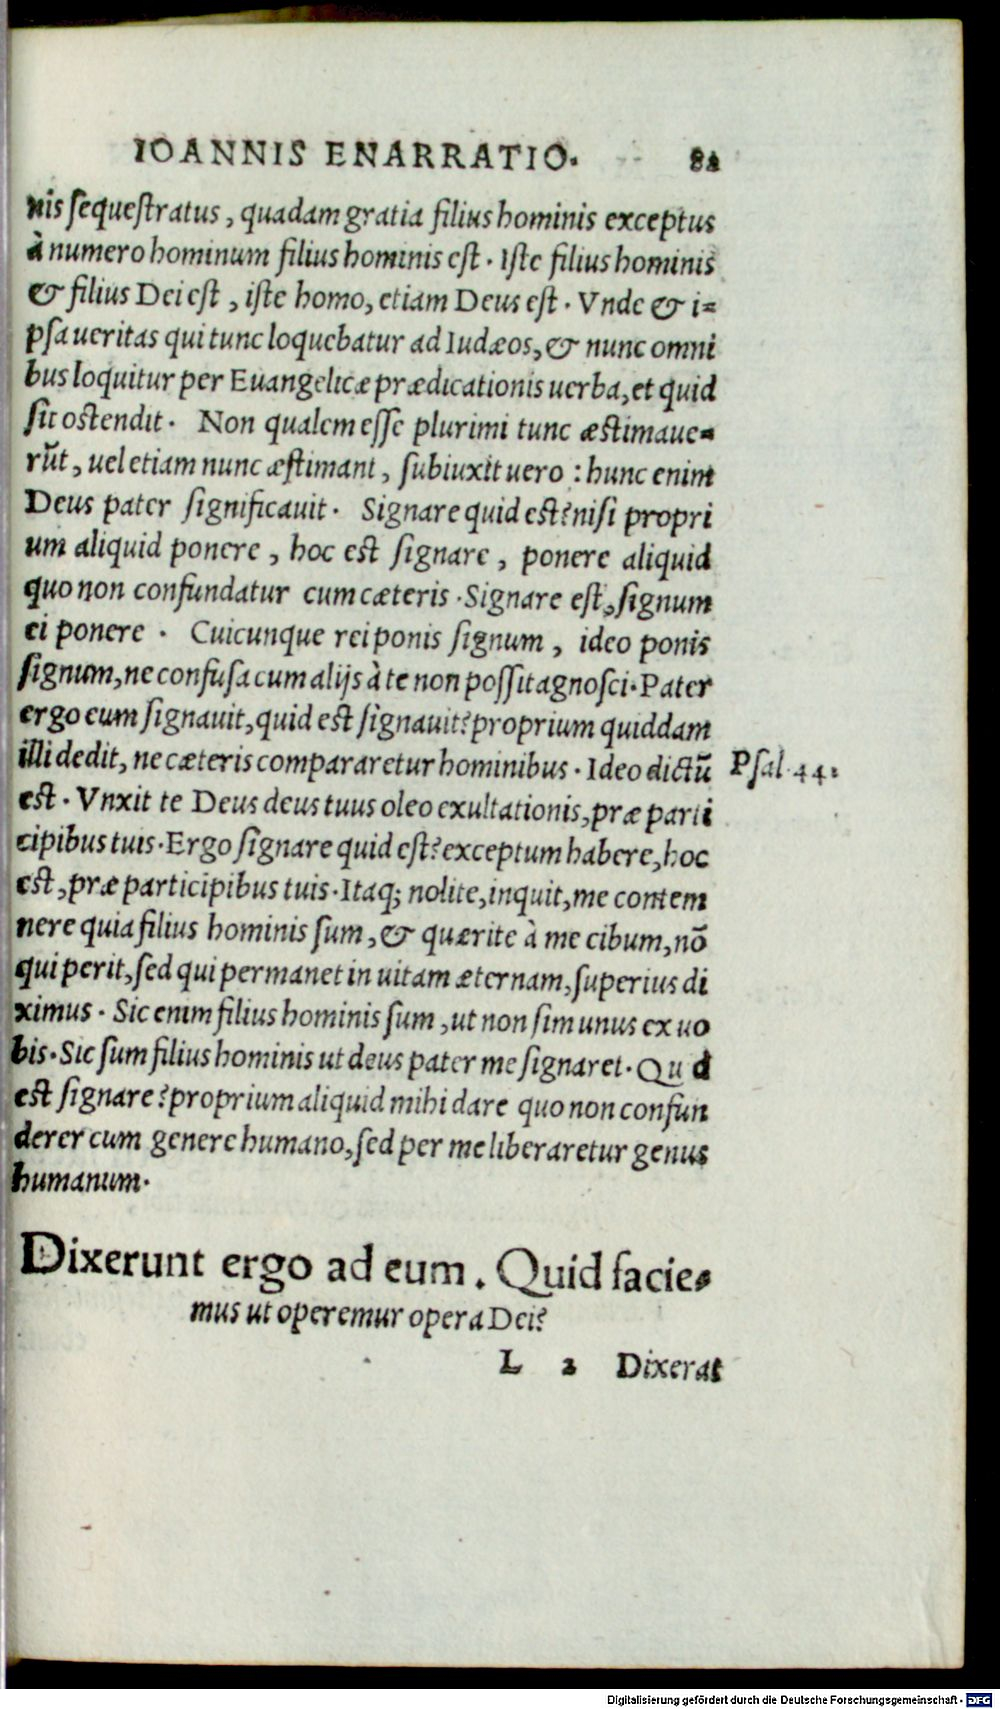 IOANNIS ENARRATIO. 82
nis ſequeſtratus, quadam gratia filius hominis exceptus
à numero hominum filius hominis eſt. Iſte filius hominis
& filius Dei eſt, iſte homo, etiam Deus eſt. Vnde & i=
pſa ueritas qui tunc loquebatur ad Iudæos, & nunc omni
bus loquitur per Euangelicæ prædicationis uerba, et quid
ſit oſtendit. Non qualem eſſe plurimi tunc æſtimaue=
rūt, uel etiam nunc æſtimant, ſubiuxit uero : hunc enim
Deus pater ſignificauit. Signare quid eſt? niſi propri
um aliquid ponere, hoc eſt ſignare, ponere aliquid
quo non confundatur cum cæteris. Signare eſt, ſignum
ei ponere. Cuicunque rei ponis ſignum, ideo ponis
ſignum, ne confuſa cum alijs à te non poſſit agnoſci. Pater
ergo eum ſignauit, quid eſt ſignauit? proprium quiddam
illi dedit, ne cæteris compararetur hominibus. Ideo dictū Pſal. 44.
eſt. Vnxit te Deus deus tuus oleo exultationis, præ parti
cipibus tuis. Ergo ſignare quid eſt? exceptum habere, hoc
eſt, præ participibus tuis. Itaq; nolite, inquit, me contem
nere quia filius hominis ſum, & quærite à me cibum, nō
qui perit, ſed qui permanet in uitam æternam, ſuperius di
ximus. Sic enim filius hominis ſum, ut non ſim unus ex uo
bis. Sic ſum filius hominis ut deus pater me ſignaret. Qu d
eſt ſignare? proprium aliquid mihi dare quo non confun
derer cum genere humano, ſed per me liberaretur genus
humanum.
Dixerunt ergo ad eum. Quid facie=
mus ut operemur opera Dei?
L 2 Dixerat
Digitalisierung gefördert durch die Deutsche Forschungsgemeinschaft - DFG